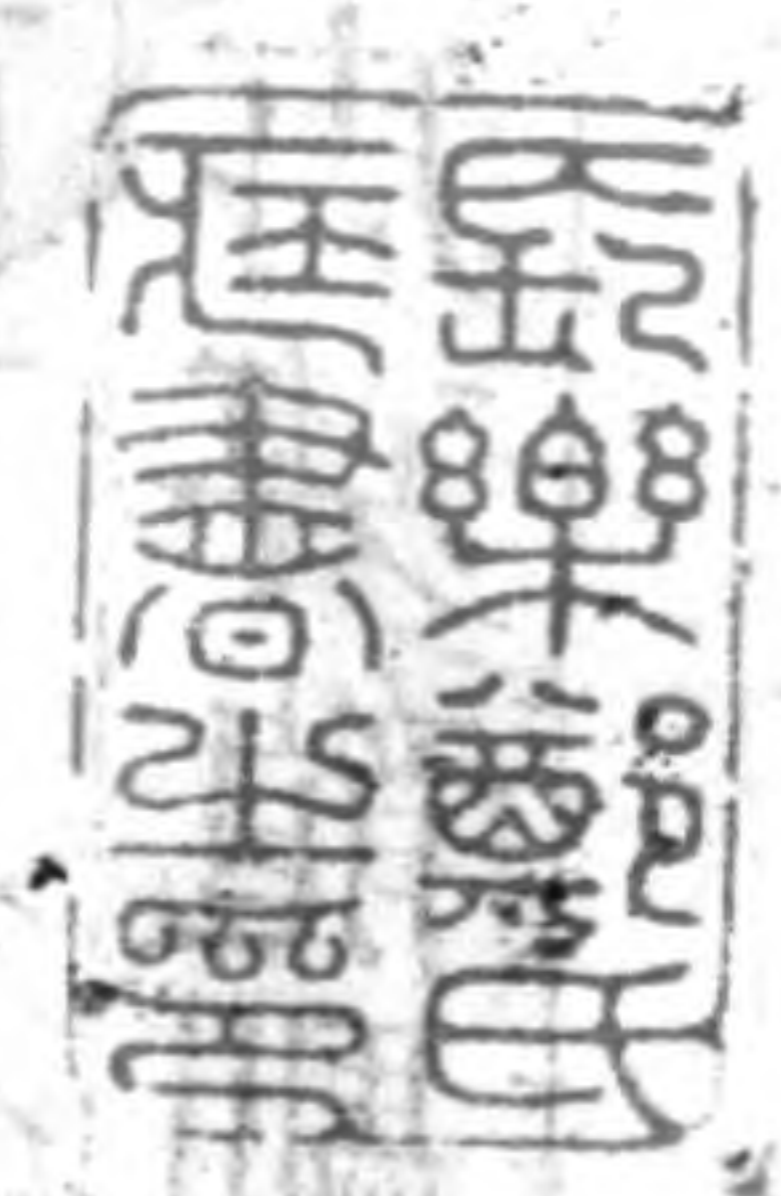 長樂鄭氏
藏書之印